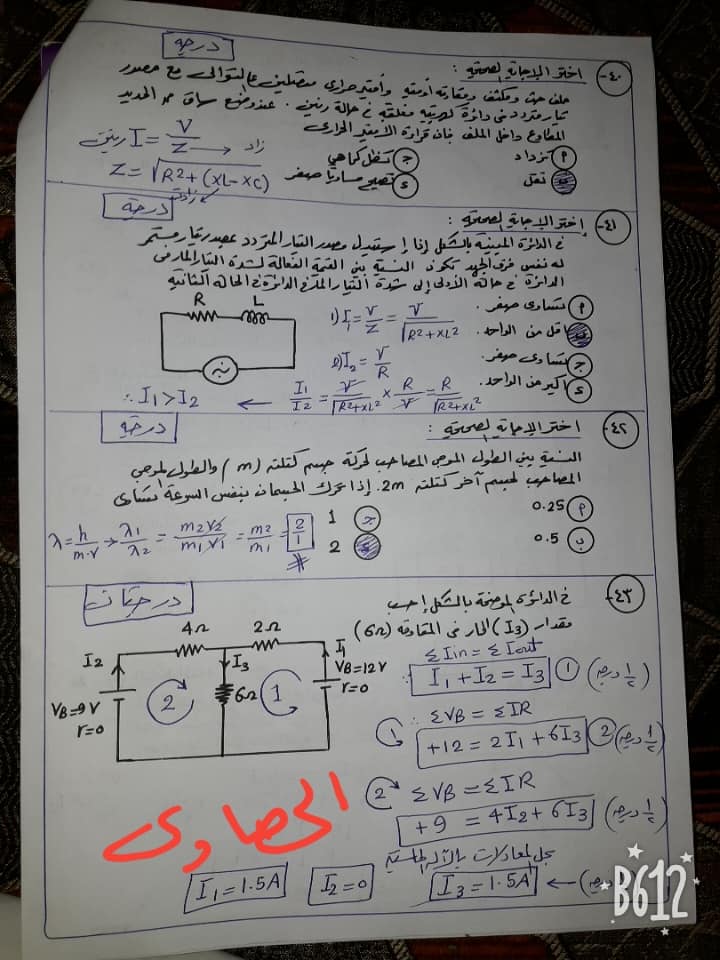 درجة
٤٠- اختر الإجابة الصحيحة :
ملف حث ومكثف ومقاومة أومية وأميتر حرارى متصلين على التوالى مع مصدر
تيار متردد فى دائرة كهربية مغلقة فى حالة رنين . عند وضع ساق من الحديد
المطاوع داخل الملف فإن قراءة الأميتر الحرارى
أ تزداد
ب تقل
ج تظل كما هي
د تصبح مساوية صفر
رنين I = V/Z → زاد
Z = √R² + (XL - XC)
زادت
درجة
٤١- إختر الإجابة الصحيحة :
فى الدائرة المبينة بالشكل إذا إستبدل مصدر التيار المتردد بمصدر تيار مستمر
له نفس فرق الجهد تكون النسبة بين القيمة الفعالة لشدة التيار المار فى
الدائرة فى حالة الأولى إلى شدة التيار المار فى الدائرة فى الحالة الثانية
أ تساوى صفر.
ب أقل من الواحد
ج تساوى صفر.
د أكبر من الواحد.
R L
1) I₁ = V/Z = V/√R²+XL²
2) I₂ = V/R
I₁/I₂ = V/√R²+XL² × R/V = R/√R²+XL²
∴ I₁ > I₂ ←
درجة
٤٢- اختر الإجابة الصحيحة :
النسبة بين الطول الموجى المصاحب لحركة جسم كتلته (m) والطول الموجى
المصاحب لجسم آخر كتلته 2m. إذا تحرك الجسمان بنفس السرعة تساوى
أ 0.25
ب 0.5
ج 1
د 2
λ = h/m.v → λ₁/λ₂ = m₂V₂/m₁V₁ = m₂/m₁ = 2/1
درجتان
٤٣- فى الدائرة الموضحة بالشكل إحسب
مقدار (I₃) المار فى المقاومة (6Ω)
4Ω 2Ω
I₂ I₃ I₁
VB=12V
r=0
6Ω
VB=9V
r=0
2 1
ΣIin = ΣIout
I₁ + I₂ = I₃ ① (½ درجة)
ΣVB = ΣIR
+12 = 2I₁ + 6I₃ ② (½ درجة)
② ΣVB = ΣIR
+9 = 4I₂ + 6I₃ (½ درجة)
بحل المعادلات بالآلة الحاسبة
I₁ = 1.5A I₂ = 0 I₃ = 1.5A ←
الحصاوى
B612